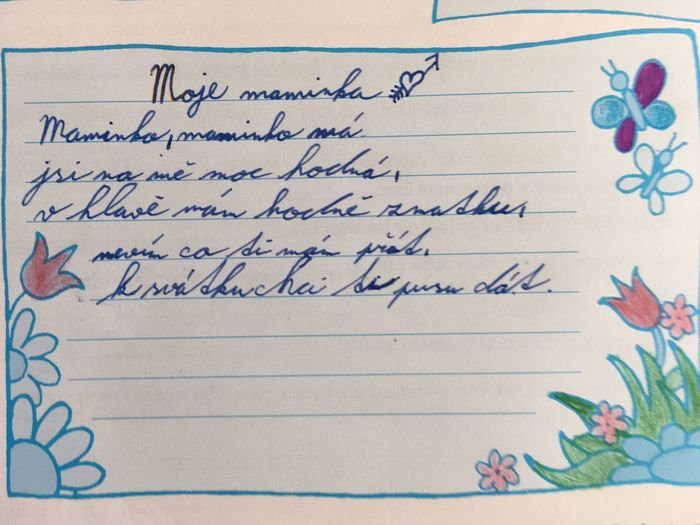 Moje maminka
Maminko, maminko má
jsi na mě moc hodná,
v hlavě mám hodně zmatku,
nevím co ti mám přát.
k svátku chci ti pusu dát.